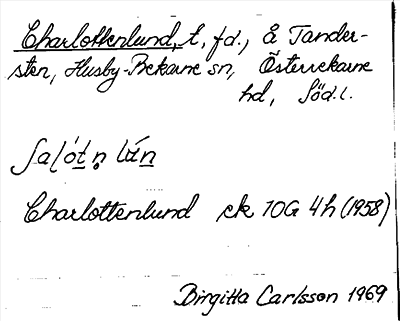 Charlottenlund, t, fd., å Tander-
sten, Husby-Rekarne sn, Österrekarne
hd, Söd.l.
Charlottenlund ek 10G 4h (1958)
Birgitta Carlsson 1969